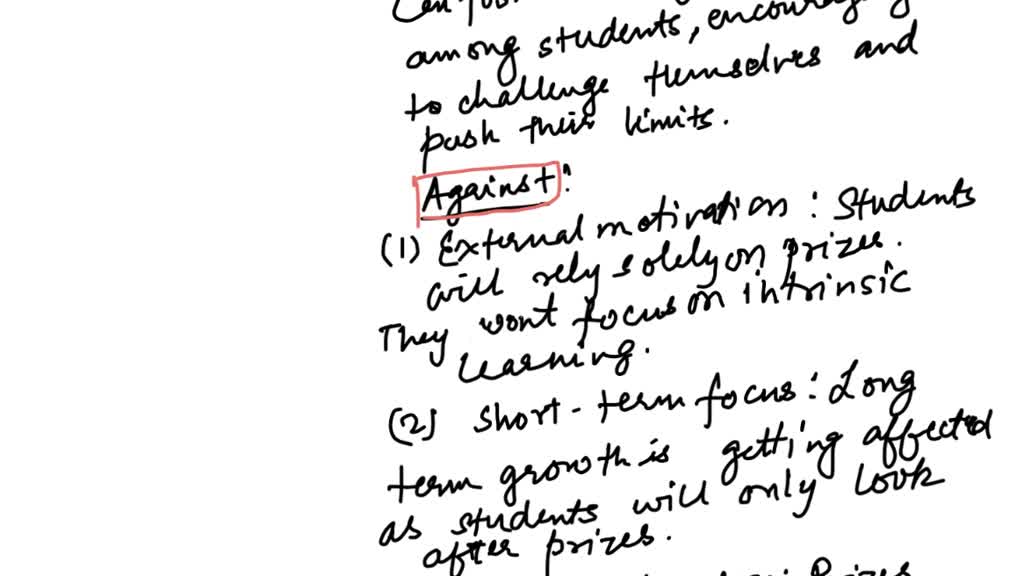 among students, encouraging
to challenge themselves and
push their limits.
Against:
(1) External motivation : Students
will rely solely on prizes.
They wont focus on intrinsic
learning.
(2) Short-term focus : Long
term growth is getting affected
as students will only look
after prizes.
Prizes